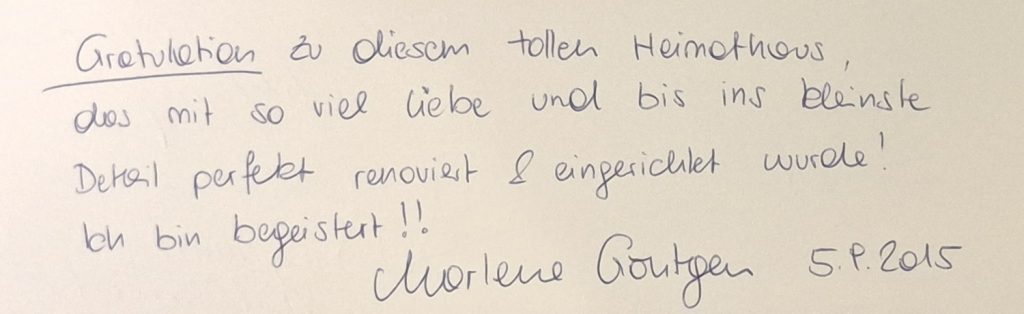 Gratulation zu diesem tollen Heimathaus,
das mit so viel Liebe und bis ins kleinste
Detail perfekt renoviert & eingerichtet wurde!
Ich bin begeistert!!
Marlene 2015